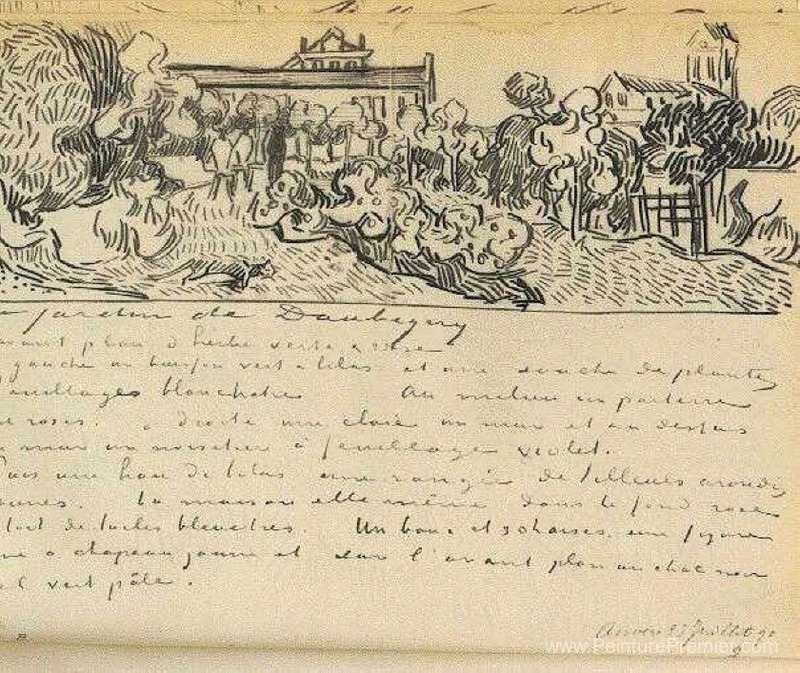 jardin de Daubigny
avant plan d'herbe verte & rose
gauche un buisson vert & lilas et une souche de plantes
feuillages blanchatres Au milieu un parterre
e roses. à droite une claie un mur et au dessus
mur un noisetier à feuillage violet.
une haie de lilas une rangée de tilleuls arrondis
jaunes. La maison elle même dans le fond rose
toit de tuiles bleuatres. Un banc et 3 chaises. une figure
à chapeau jaune et sur l'avant plan un chat noir
el vert pâle.
Auvers 23 Juillet 90
www.PeinturePremier.com